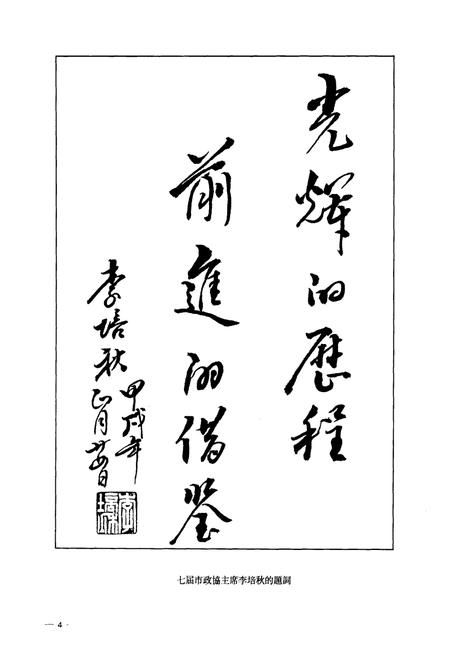 光輝的歷程
前進的借鑒
李培秋
甲戌年
正月廿四日
七届市政協主席李培秋的題詞
— 4 ·